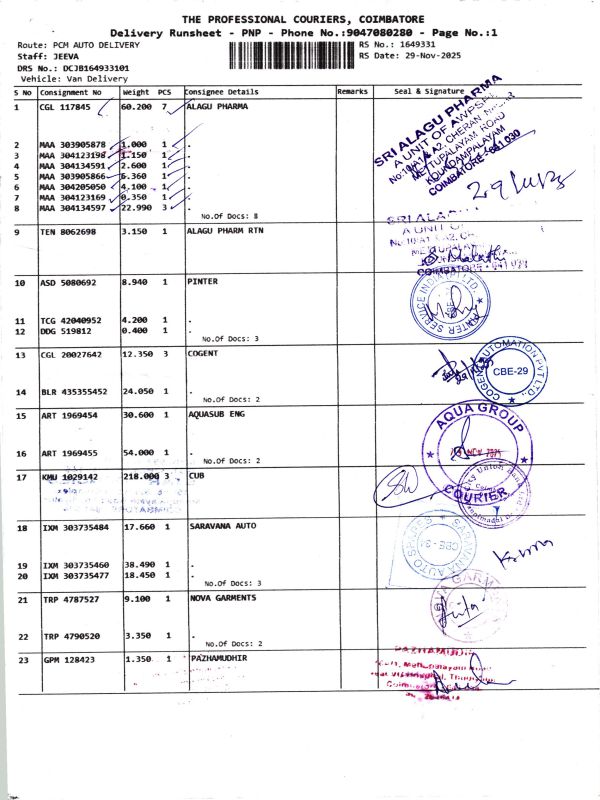 THE PROFESSIONAL COURIERS, COIMBATORE
Delivery Runsheet - PNP - Phone No.:9047080280 - Page No.:1
Route: PCM AUTO DELIVERY
RS No.: 1649331
Staff: JEEVA
RS Date: 29-Nov-2025
DRS No.: DCJB164933101
Vehicle: Van Delivery
S No Consignment No Weight PCS Consignee Details Remarks Seal & Signature
1 CGL 117845 60.200 7 ALAGU PHARMA
2 MAA 303905878 1.000 1 .
3 MAA 304123198 1.150 1 .
4 MAA 304134591 2.600 1 .
5 MAA 303905866 6.360 1 .
6 MAA 304205050 4.100 1 .
7 MAA 304123169 0.350 1 .
8 MAA 304134597 22.990 3 .
No.Of Docs: 8
SRI ALAGU PHARMA
A UNIT OF
METTUPALAYAM ROAD
KOUNDAMPALAYAM
COIMBATORE - 641 030
9 TEN 8062698 3.150 1 ALAGU PHARM RTN
SRI ALA
A UNIT OF
COIMBATORE
10 ASD 5080692 8.940 1 PINTER
11 TCG 42040952 4.200 1 .
12 DDG 519812 0.400 1 .
No.Of Docs: 3
PINTER SERVICE INDIA PVT LTD.
13 CGL 20027642 12.350 3 COGENT
14 BLR 435355452 24.050 1 .
No.Of Docs: 2
COGENT AUTOMATION PVT LTD.,
CBE-29
15 ART 1969454 30.600 1 AQUASUB ENG
16 ART 1969455 54.000 1 .
No.Of Docs: 2
AQUA GROUP
NOV 2025
COURIER
17 KMU 1029142 218.000 3 CUB
18 IXM 303735484 17.660 1 SARAVANA AUTO
19 IXM 303735460 38.490 1 .
20 IXM 303735477 18.450 1 .
No.Of Docs: 3
SARAVANA AUTO SPARES
CBE-34
21 TRP 4787527 9.100 1 NOVA GARMENTS
22 TRP 4790520 3.350 1 .
No.Of Docs: 2
23 GPM 128423 1.350 1 PAZHAMUDHIR